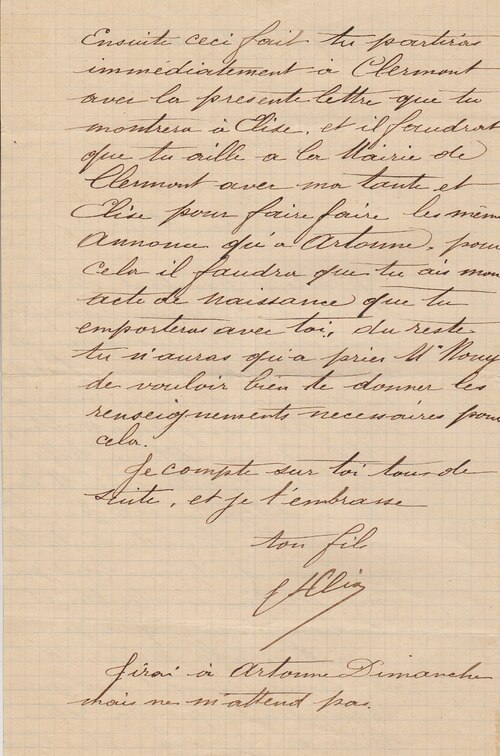 Ensuite ceci fait tu partiras
immédiatement à Clermont
avec la presente lettre que tu
montrera à Elise, et il faudrat
que tu aille a la Mairie de
Clermont avec ma tante et
Elise pour faire faire les même
Annonce qu'à Artonne, pour
cela il faudra que tu ais mon
acte de naissance que tu
emporteras avec toi, du reste
tu n'auras qu'a prier Mr
de vouloir bien te donner les
renseignements necessaires pour
cela.
Je compte sur toi tous de
suite, et je t'embrasse
ton fils
J'irai à Artonne Dimanche
mais ne m'attend pas.